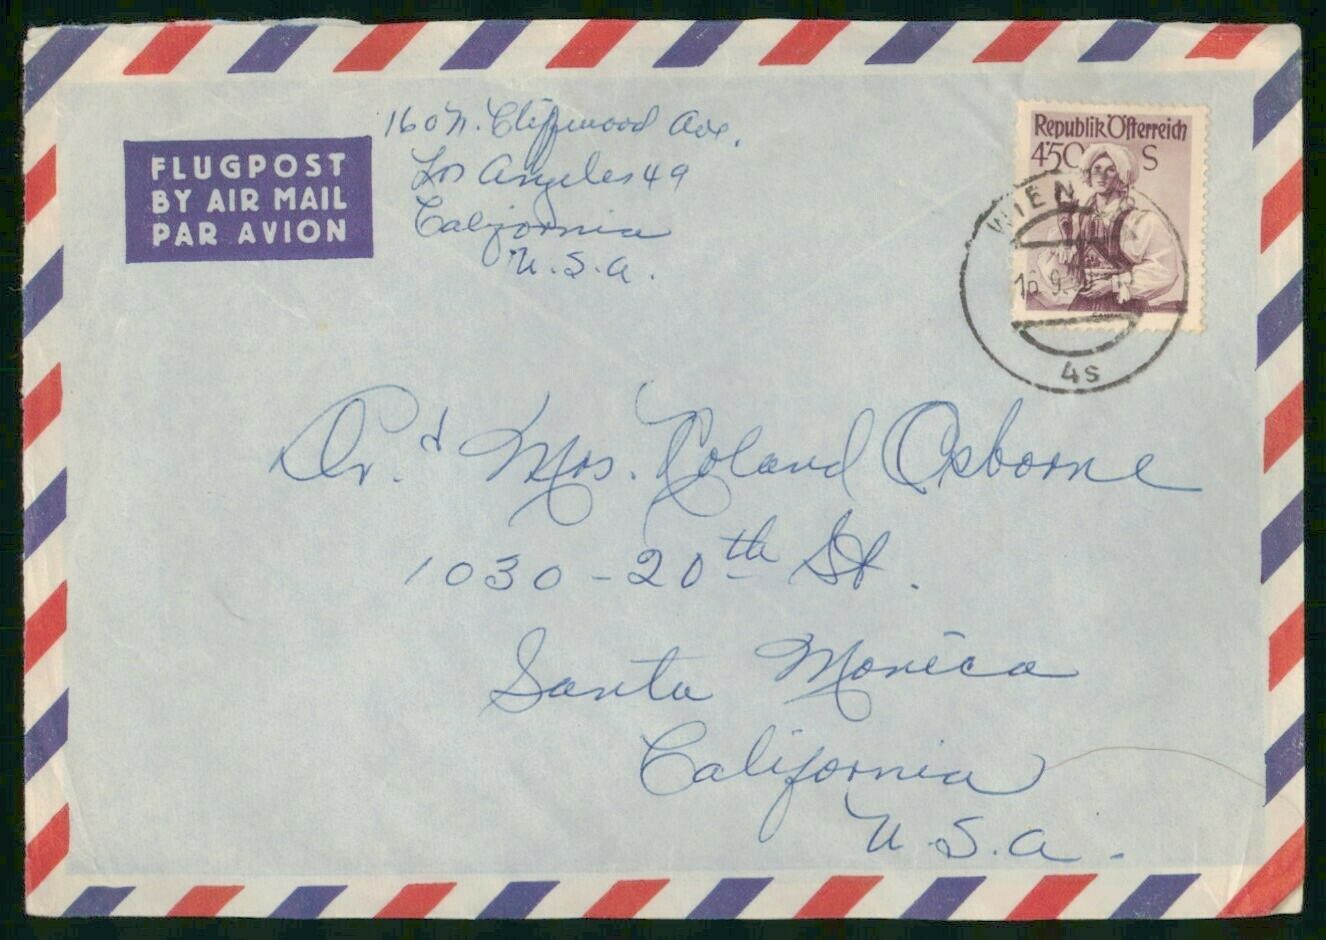 160 N. Cliffwood Ave.
Los Angeles 49
California
U.S.A.
FLUGPOST
BY AIR MAIL
PAR AVION
Republik Österreich
4'50 S
WIEN
16.9.
4s
Dr. & Mrs. Roland Osborne
1030 - 20th St.
Santa Monica
California
U.S.A.